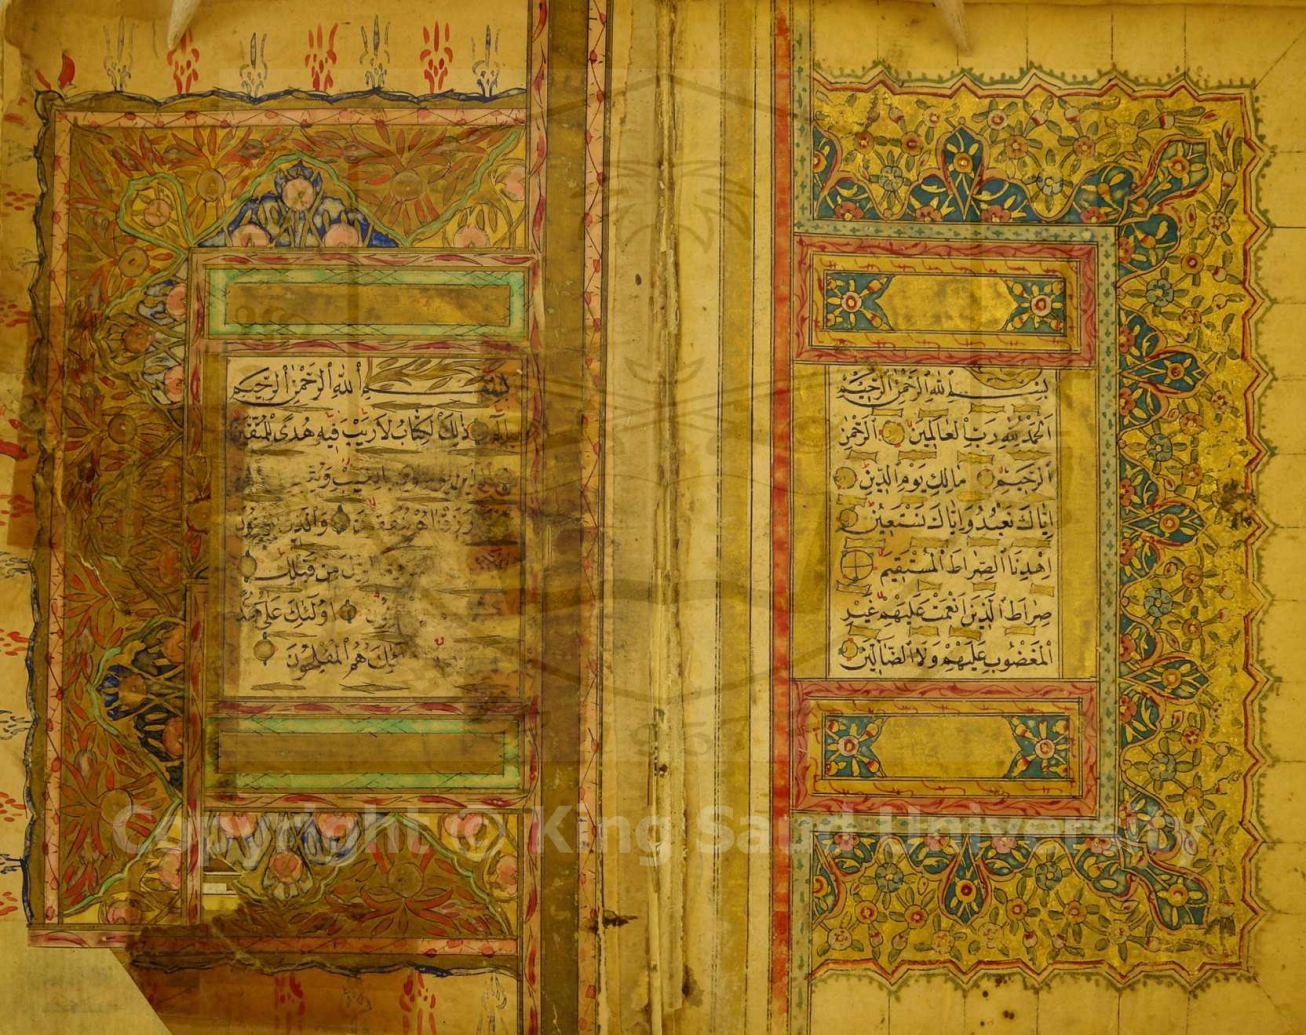 بسم الله الرحمن الرحيم
الحمد لله رب العالمين الرحمن
الرحيم مالك يوم الدين
اياك نعبد واياك نستعين
اهدنا الصراط المستقيم
صراط الذين انعمت عليهم غير
المغضوب عليهم ولا الضالين
بسم الله الرحمن الرحيم
الم ذلك الكتاب لا ريب فيه هدى للمتقين
رزقناهم ينفقون والذين يؤمنون
من قبلك
اولئك على هدى
هم المفلحون
Copyright © King Saud University
1957